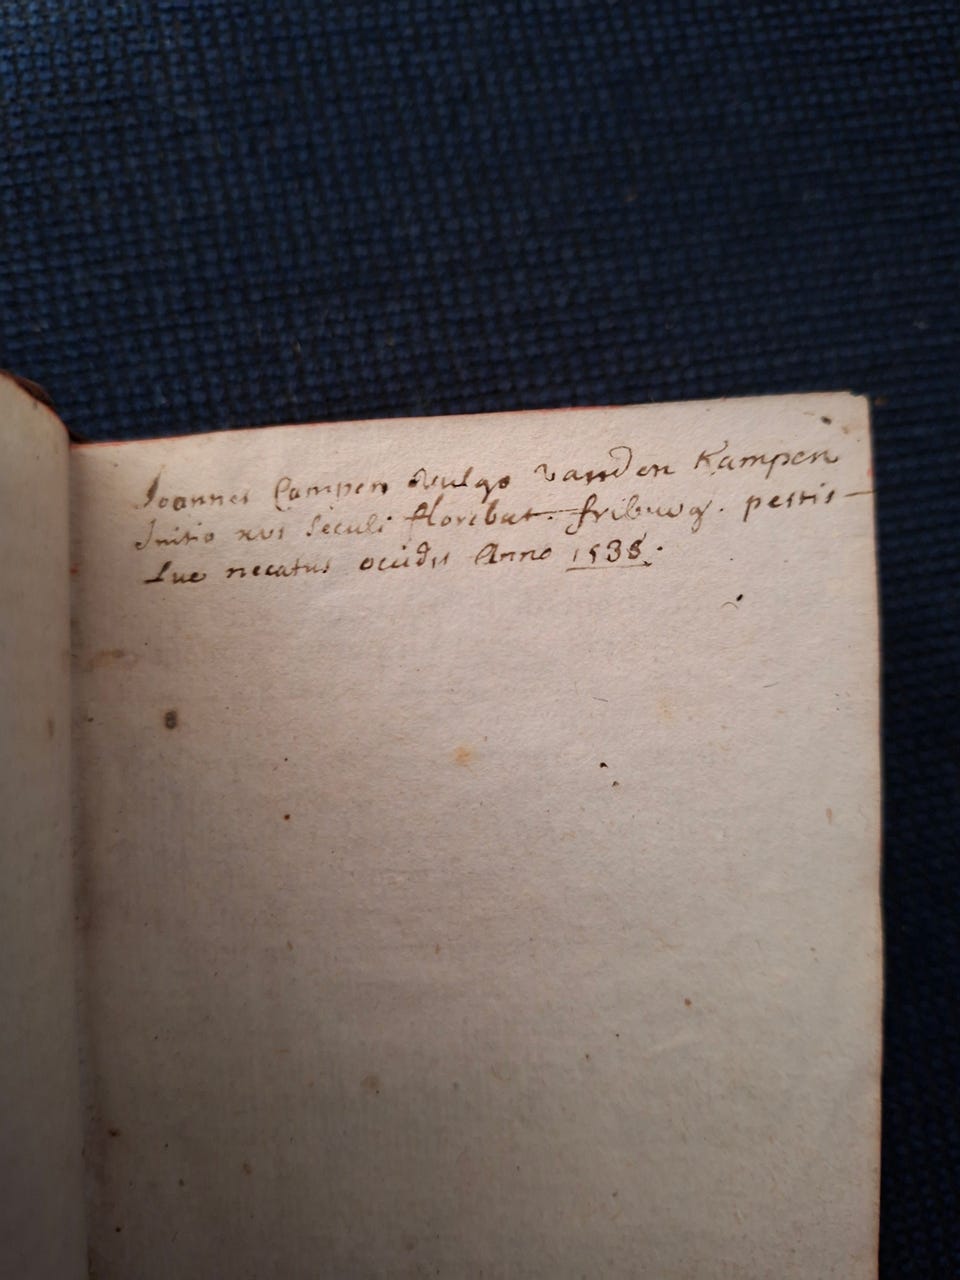 Joannes Campen vulgo vanden Kampen
Initio xvi seculi florebat. friburg. pestis
lue necatus occidit Anno 1538.